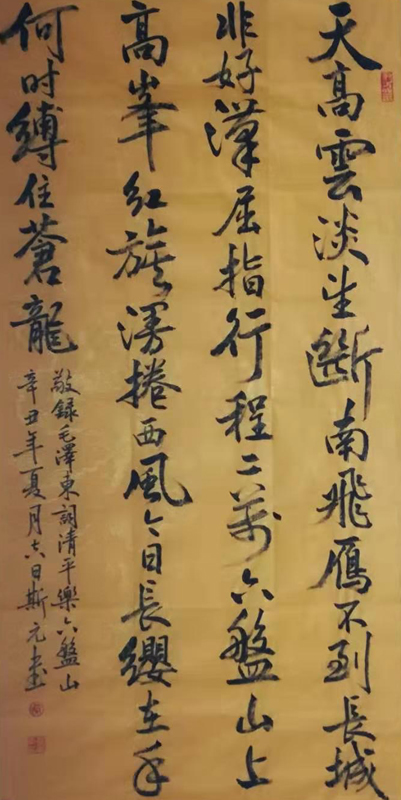 天高雲淡望斷南飛鴈不到長城
非好漢屈指行程二萬六盤山上
高峯紅旗漫捲西風今日長纓在手
何时縛住蒼龍
敬録毛澤東詞清平樂六盤山
辛丑年夏月六日斯元書